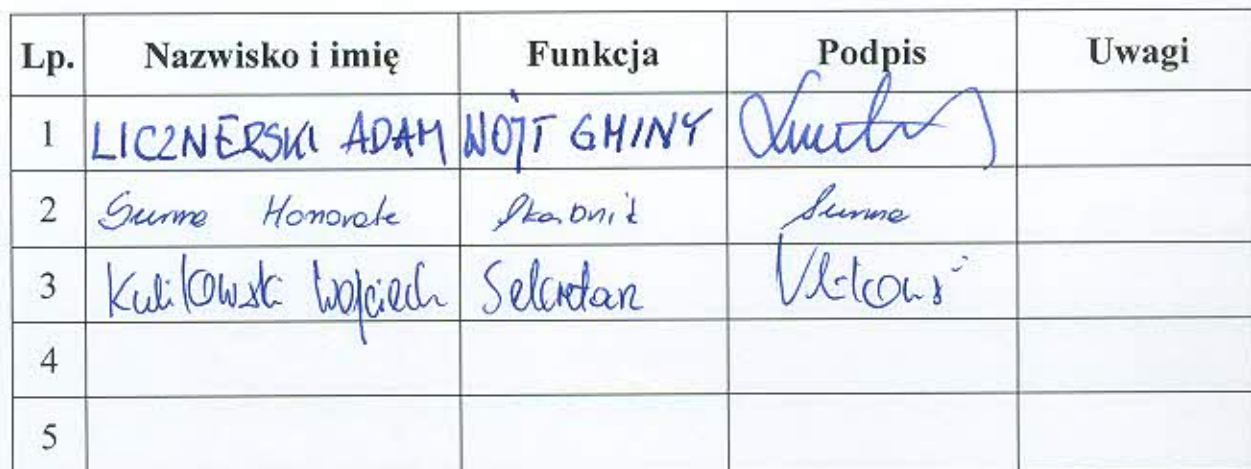 Lp. Nazwisko i imię Funkcja Podpis Uwagi
1 LICZNERSKI ADAM WÓJT GMINY
2 Sumna Honorata Skarbnik Sumna
3 Kulikowski Wojciech Sekretarz
4
5